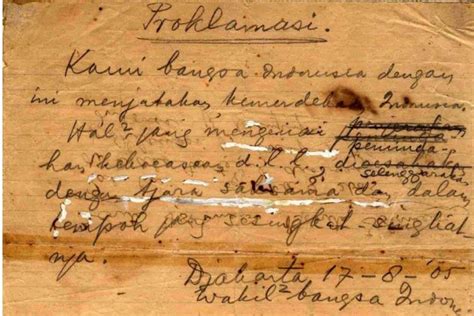 Proklamasi.
Kami bangsa Indonesia dengan
ini menjatakan kemerdekaan Indonesia.
Hal² jang mengenai
peminda-
han kekoeasaan d.l.l. dioesahakan
selenggarakan
dengan tjara saksama dan dalam
tempoh jang sesingkat-singkat-
nja.
Djakarta 17-8-'05
Wakil² bangsa Indone